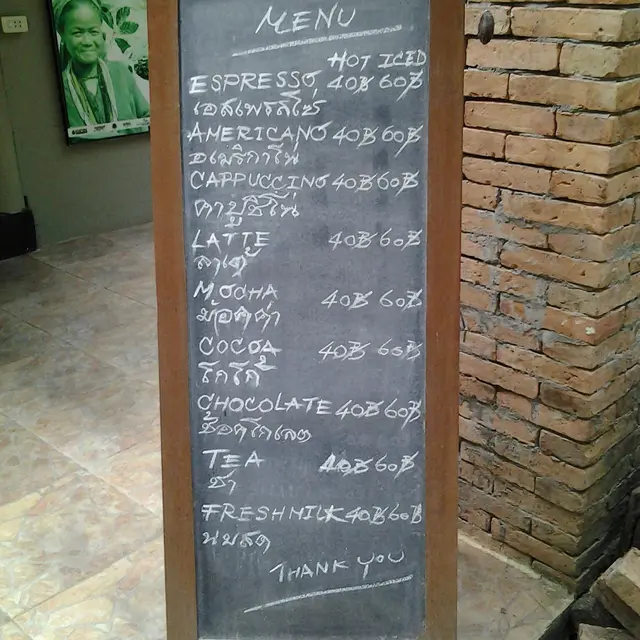 MENU
HOT ICED
ESPRESSO 40฿ 60฿
เอสเพรสโซ่
AMERICANO 40฿ 60฿
อเมริกาโน
CAPPUCCINO 40฿ 60฿
คาปูชิโน
LATTE 40฿ 60฿
ลาเต้
MOCHA 40฿ 60฿
ม้อคค่า
COCOA 40฿ 60฿
โกโก้
CHOCOLATE 40฿ 60฿
ช็อคโกเลต
TEA 40฿ 60฿
ชา
FRESHMILK 40฿ 60฿
นมสด
THANK YOU